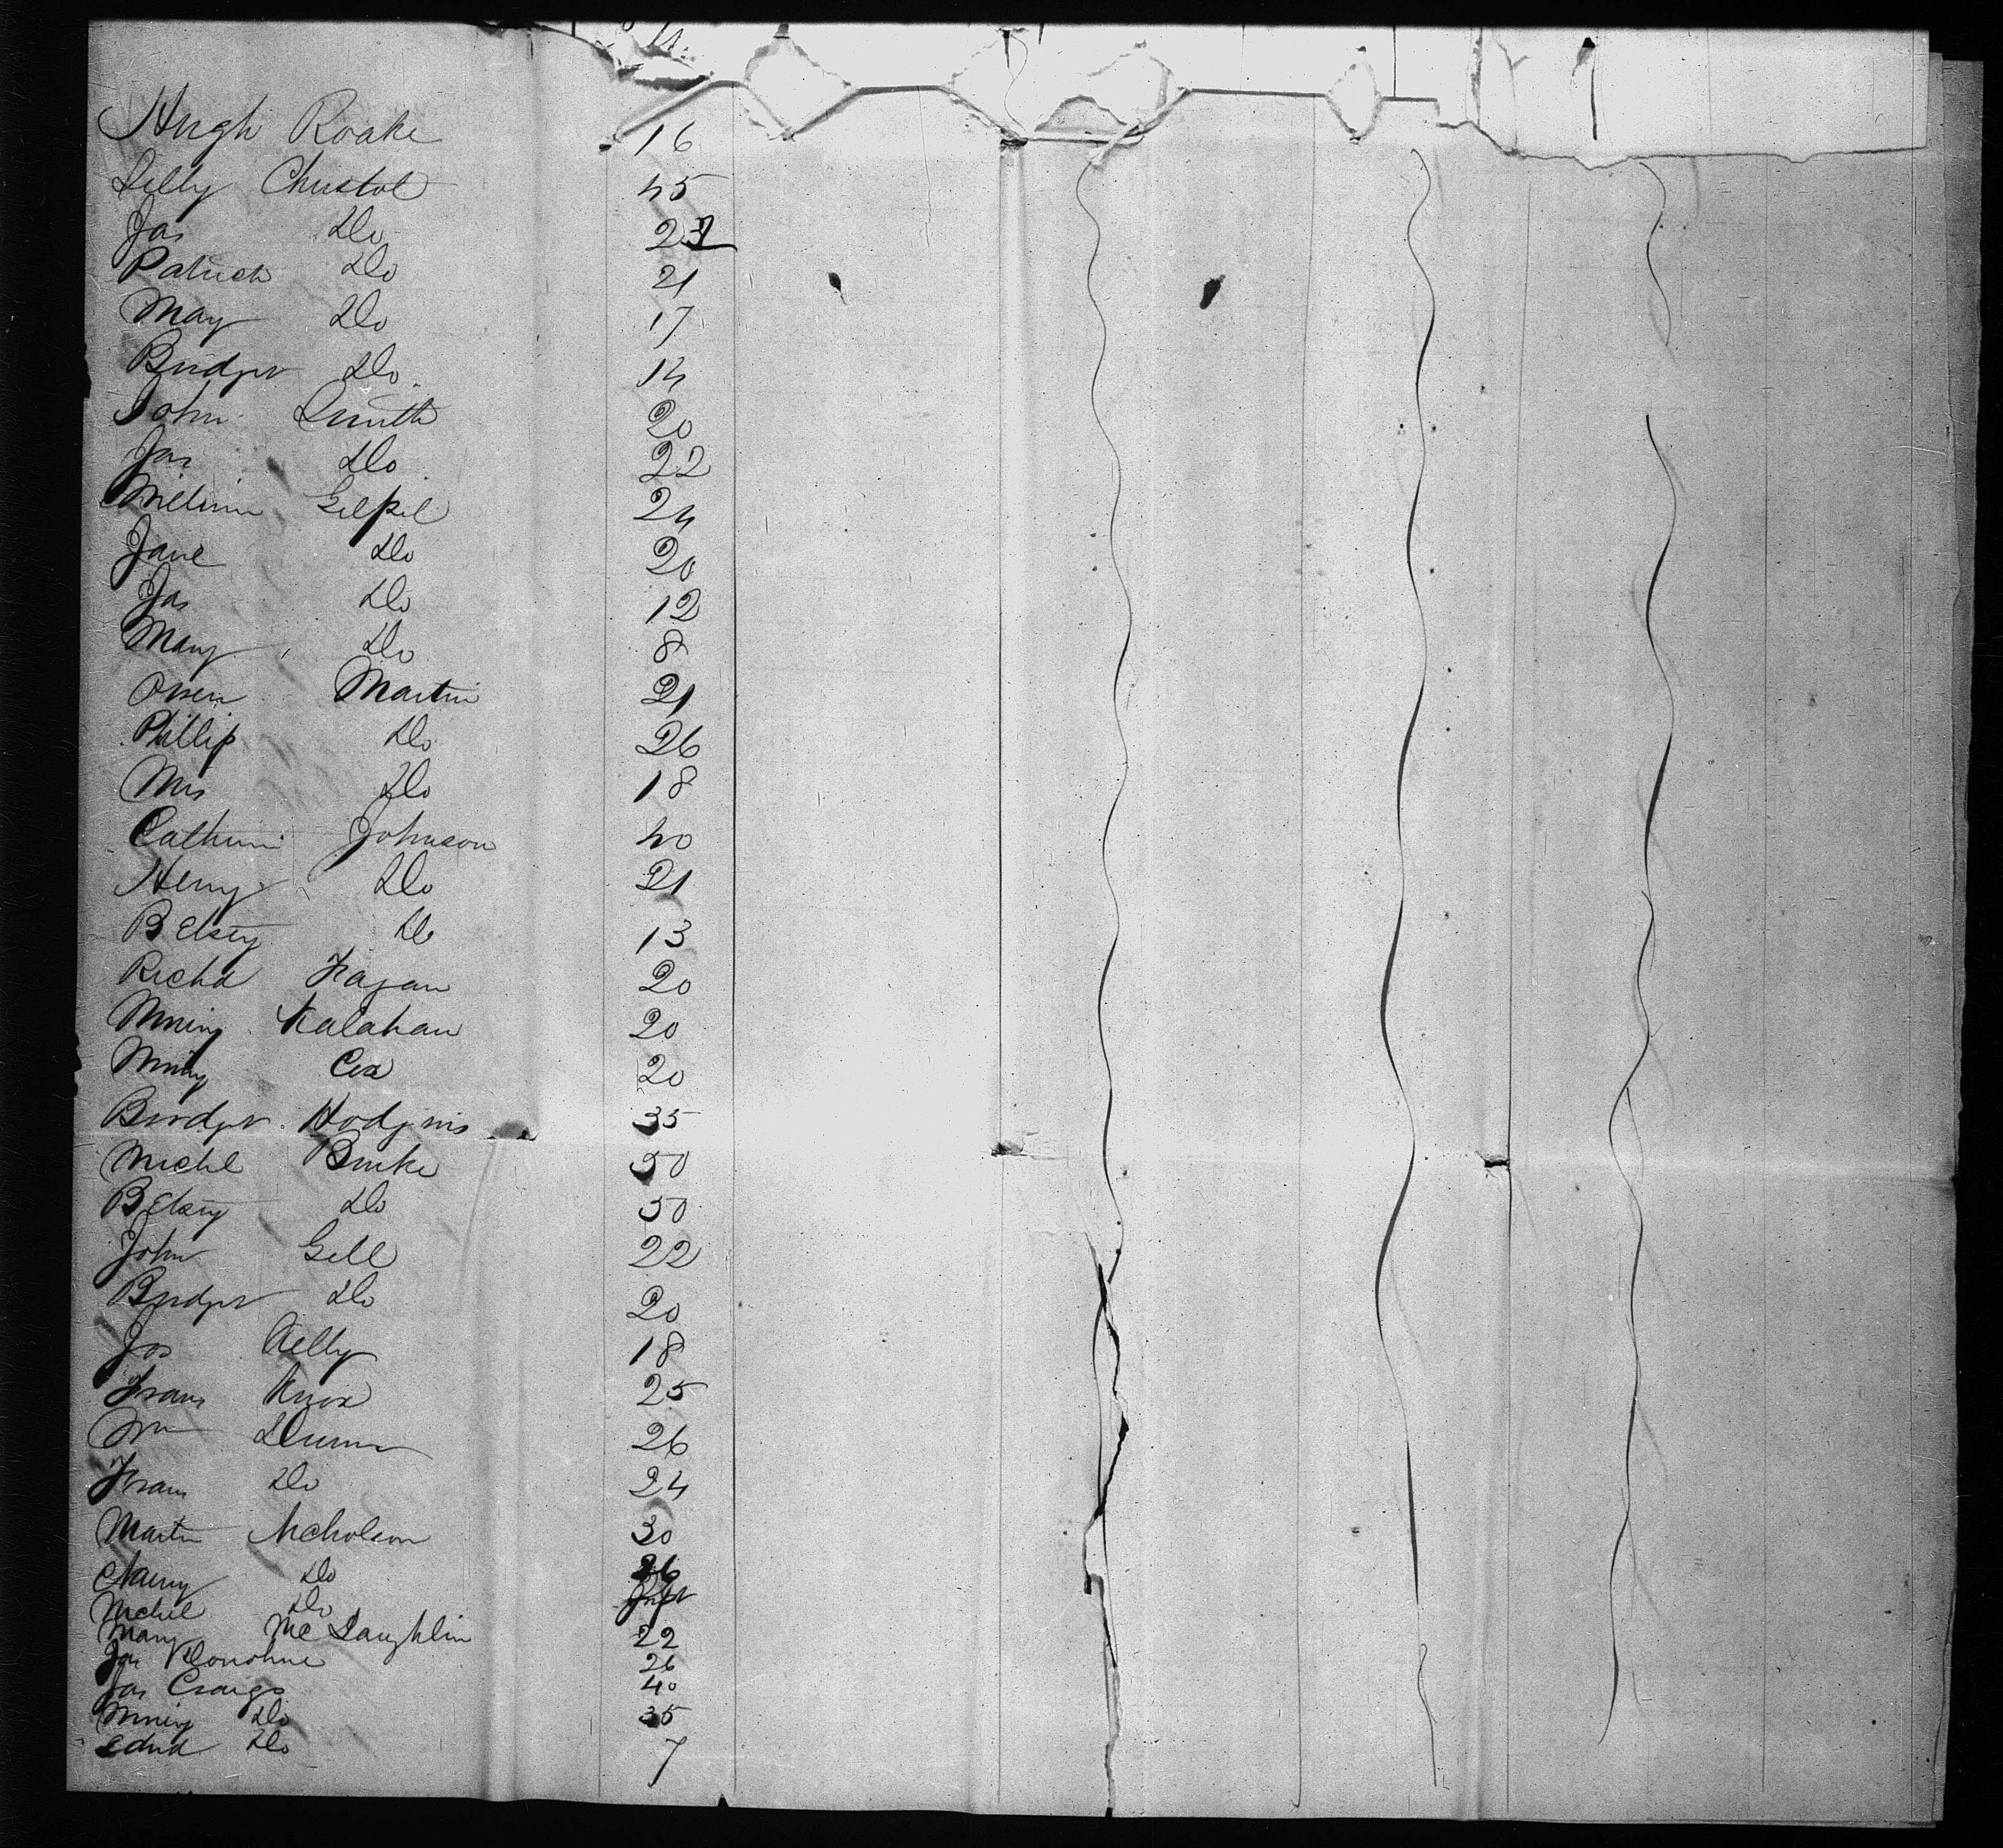 Hugh Roake 16
Lilly Christol 45
Jas Do 23
Patrick Do 21
Mary Do 17
Bridget Do 14
John Smith 20
Jas Do 22
Gilpil 24
Jane Do 20
Jas Do 12
Mary Do 8
Owen Martin 21
Phillip Do 26
Mrs Do 18
Catherine Johnson 40
Henry Do 21
Betsey Do 13
Richd Fagan 20
Kalahan 20
Cox 20
Bridget Hodgins 35
Michl Burke 50
Betsey Do 50
John Gill 22
Bridget Do 20
Jos Kelly 18
Frans Knox 25
Wm Dunn 26
Frans Do 24
Martin Nicholson 30
Do 26
Michl Do Inft
Mary McLaughlin 22
Jas Donohue 26
Jas Craigs 40
Do 35
Edwd Do 7